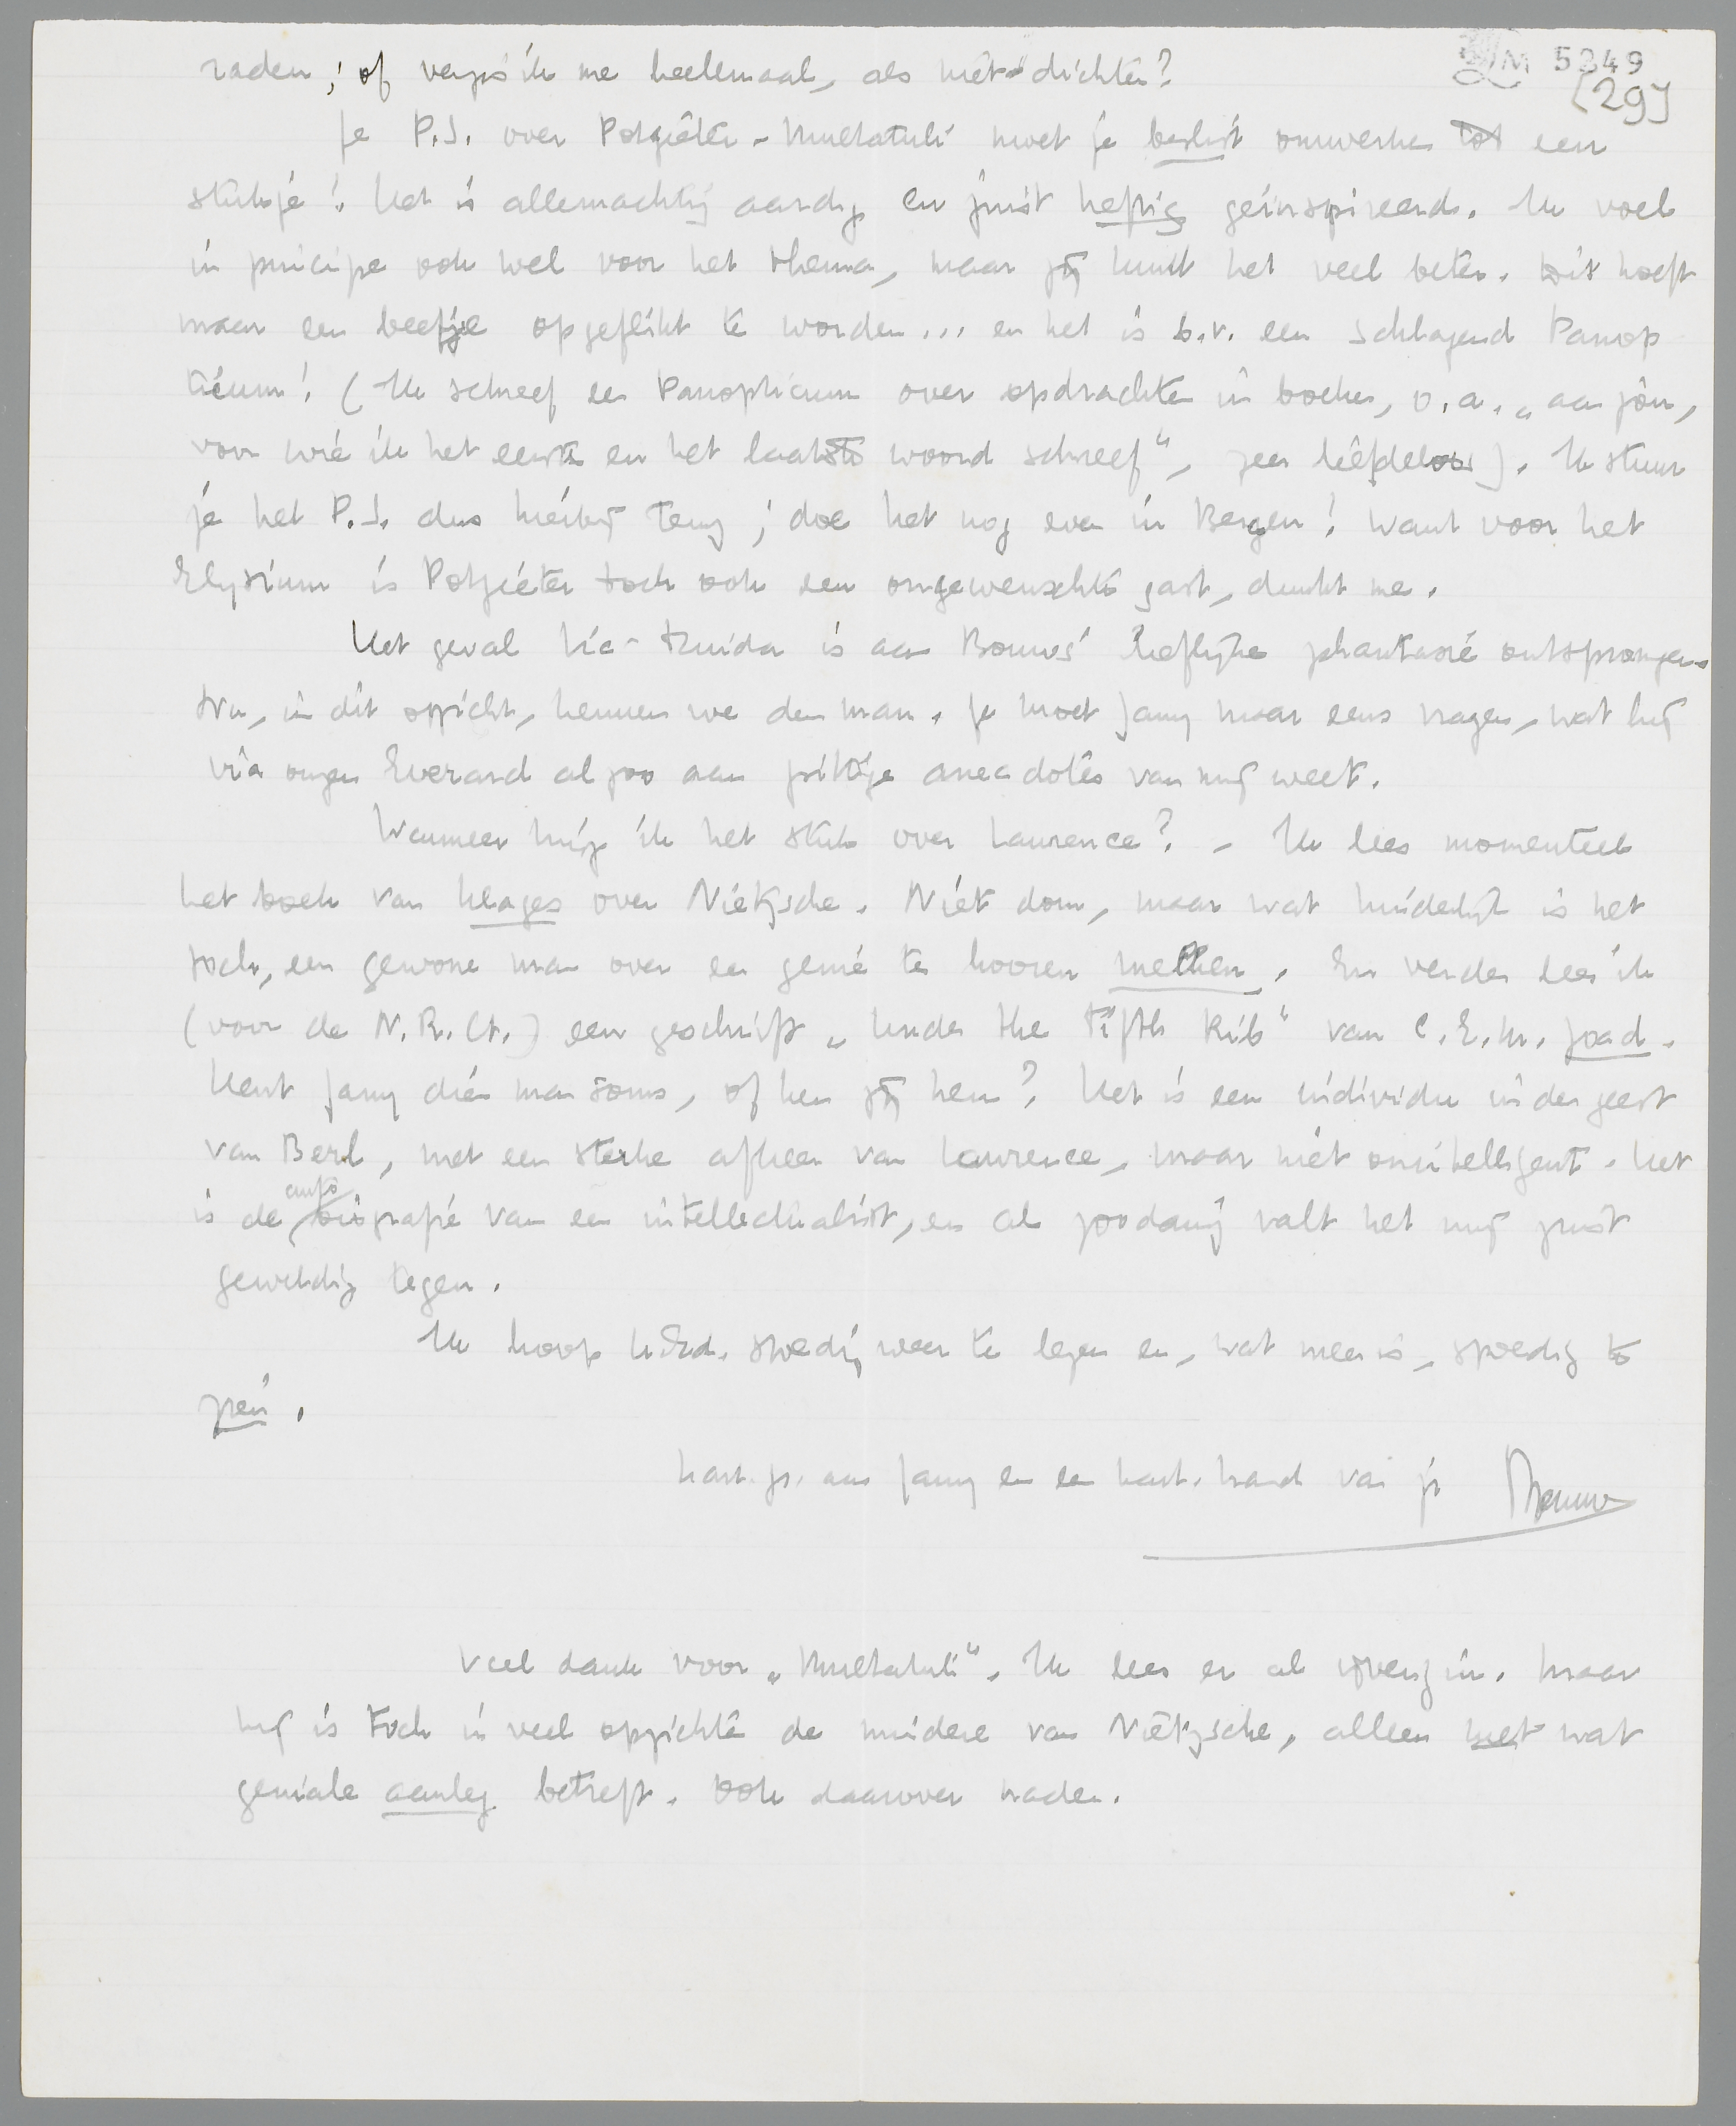 LM 5349
[29]
raden; of vergis ik me heelemaal, als niet-dichter?
Je P.S. over Potgieter-Multatuli moet je beslist omwerken tot een
stukje! Het is allemachtig aardig en juist heftig geïnspireerd. Ik voel
in principe ook wel voor het thema, maar jij kunt het veel beter. Dit hoeft
maar een beetje opgeflikt te worden... en het is b.v. een schlagend Panop
ticum! (Ik schreef een Panopticum over opdrachten in boeken, o.a. „aan jou,
voor wie ik het eerste en het laatste woord schreef", zeer liefdeloos). Ik stuur
je het P.S. dus hierbij terug; doe het nog even in Bergen! Want voor het
Elysium is Potgieter toch ook een ongewenschte gast, dunkt me.
Het geval Lic-Truida is aan Bouws' liefelijke phantasie ontsprongen.
Nu, in dit opzicht, kennen we den man. Je moet Jany maar eens vragen, wat hij
via ongen Everard al zoo aan pittige anecdotes van mij weet.
Wanneer krijg ik het stuk over Lawrence? – Ik lees momenteel
het boek van Klages over Nietzsche. Niet dom, maar wat hinderlijk is het
toch, een gewone man over een genie te hooren mekken. En verder lees ik
(voor de N.R.Ct.) een geschrift „Under the Fifth Rib" van C.E.M. Joad.
Kent Jany dien man soms, of ken jij hem? Het is een individu in den geest
van Berl, met een sterke afkeer van Lawrence, maar niet onintelligent. Het
is de auto
biografie van een intellectualist, en als zoodanig valt het mij juist
geweldig tegen.
Ik hoop UEd. spoedig weer te lezen en, wat meer is, spoedig te
zien.
Hart. gr. aan Jany en een hart. hand van je Menno
Veel dank voor „Multatuli". Ik lees er al ijverig in. Maar
hij is toch in veel opzichten de mindere van Nietzsche, alleen niet wat
geniale aanleg betreft. Ook daarover nader.